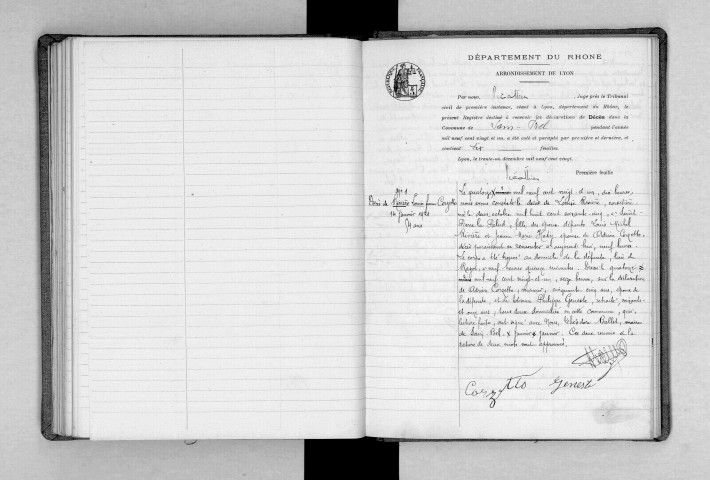 DÉPARTEMENT DU RHONE
ARRONDISSEMENT DE LYON
Par nous, Juge près le Tribunal
civil de première instance, séant à Lyon, département du Rhône, le
présent Registre destiné à recevoir les déclarations de Décès dans la
Commune de Sain-Bel pendant l'année
mil neuf cent vingt et un, a été coté et paraphé par première et dernière, et
contient six feuilles.
Lyon, le trente-un décembre mil neuf cent vingt.
Première feuille
N° 1
Décès de Rivière Louise femme Corzetto
14 Janvier 1921
Le quatorze mil neuf cent vingt et un, dix heures,
nous avons constaté le décès de Louise Rivière, couturière
née le deux octobre mil huit cent soixante cinq, à Saint
Pierre la Palud, fille des époux défunts Louis Michel
Rivière et Jeanne Marie, épouse de Corzetto,
décès paraissant remonter à aujourd'hui, neuf heures.
Le corps a été trouvé au domicile de la défunte, lieu de
Razat, à neuf heures quinze minutes. Dressé le quatorze
mil neuf cent vingt et un, seize heures, sur la déclaration
de Corzetto, mineur, cinquante cinq ans, époux de
la défunte, et de Etienne Philippe Geneste, retraité, soixante
et onze ans, tous deux domiciliés en cette commune, qui,
lecture faite, ont signé avec Nous, Théodore Ballet, maire
de Sain-Bel. x janvier x janvier. Ces deux renvois et la
rature de deux mots sont approuvés.
Corzetto Geneste